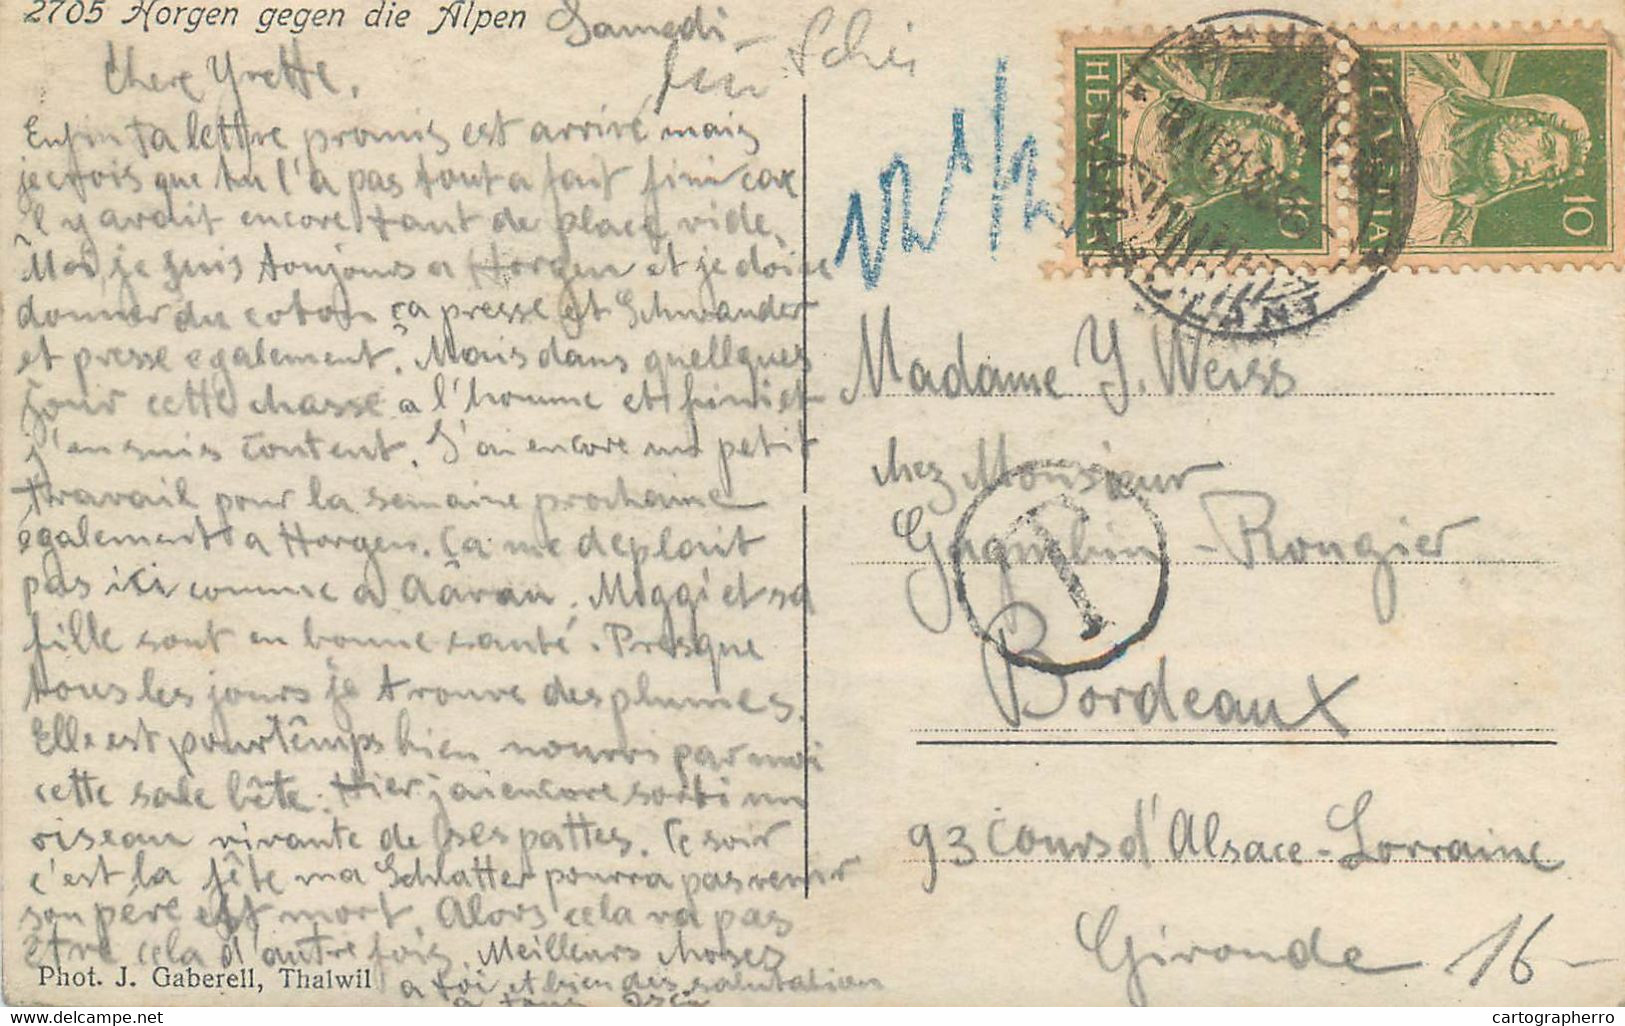 2705 Horgen gegen die Alpen
Samedi
Chere Yvette,
Enfin ta lettre promis est arrivé mais
je crois que tu l'a pas tout a fait fini car
il y avait encore tant de place vide.
Moi, je suis toujours a Horgen et je dois
donner du coton ça presse et Schwander
et presse egalement. Mais dans quellques
jour cette chasse a l'homme et fini et
j'en suis content. J'ai encore un petit
travail pour la semaine prochaine
également a Horgen. Ça me deplait
pas ici comme a Aârau. Moggi et sa
fille sont en bonne santé. Presque
tous les jours je trouve des plumes.
Elle est pourtêmps bien nourri par moi
cette sale bête. Hier j'ai encore sorti un
oiseau vivante de ses pattes. Ce soir
c'est la fête ma Schlatter pourra pas venir
son père est mort. Alors cela va pas
être cela d'autre fois. Meilleurs choses
a toi et bien des salutation
a tous
Phot. J. Gaberell, Thalwil
12 1/2
HELVETIA 10
HELVETIA 10
T
Madame Y. Weiss
chez Monsieur
Gaguebin - Rougier
Bordeaux
93 Cours d'Alsace-Lorraine
Gironde 16-
cartographer.miiduu.com
cartographerro